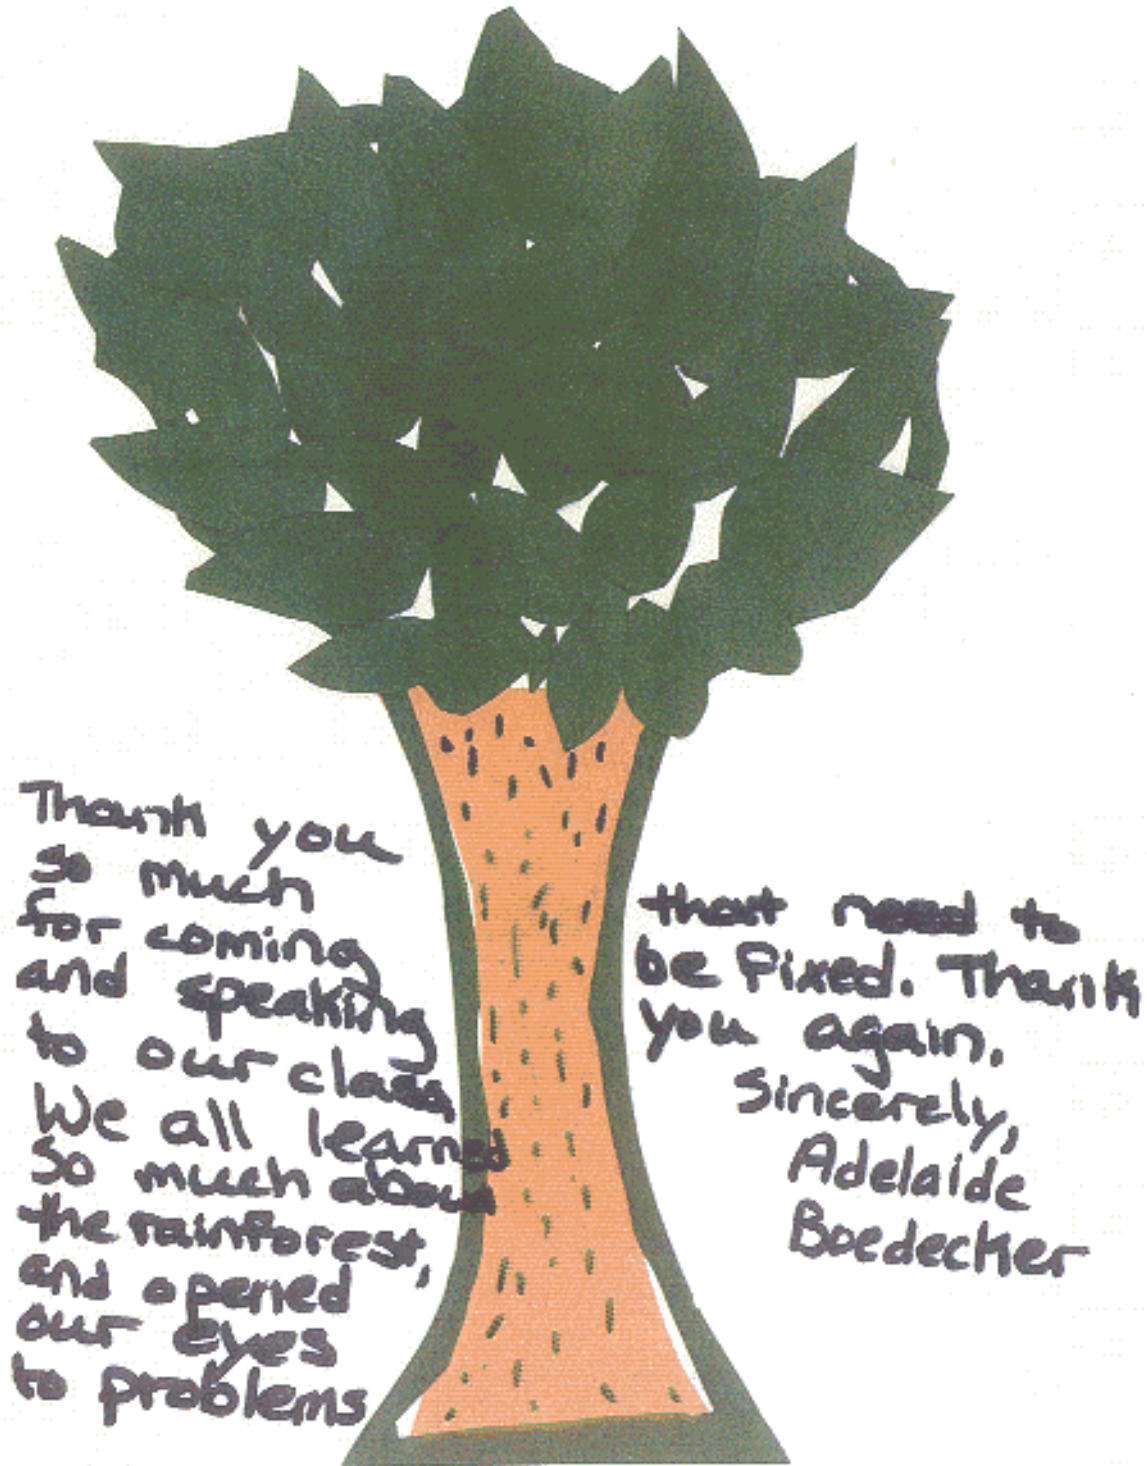 Thank you
so much
for coming
and speaking
to our class
We all learned
so much about
the rainforest,
and opened
our eyes
to problems
that need to
be fixed. Thank
you again.
Sincerely,
Adelaide
Boedecker